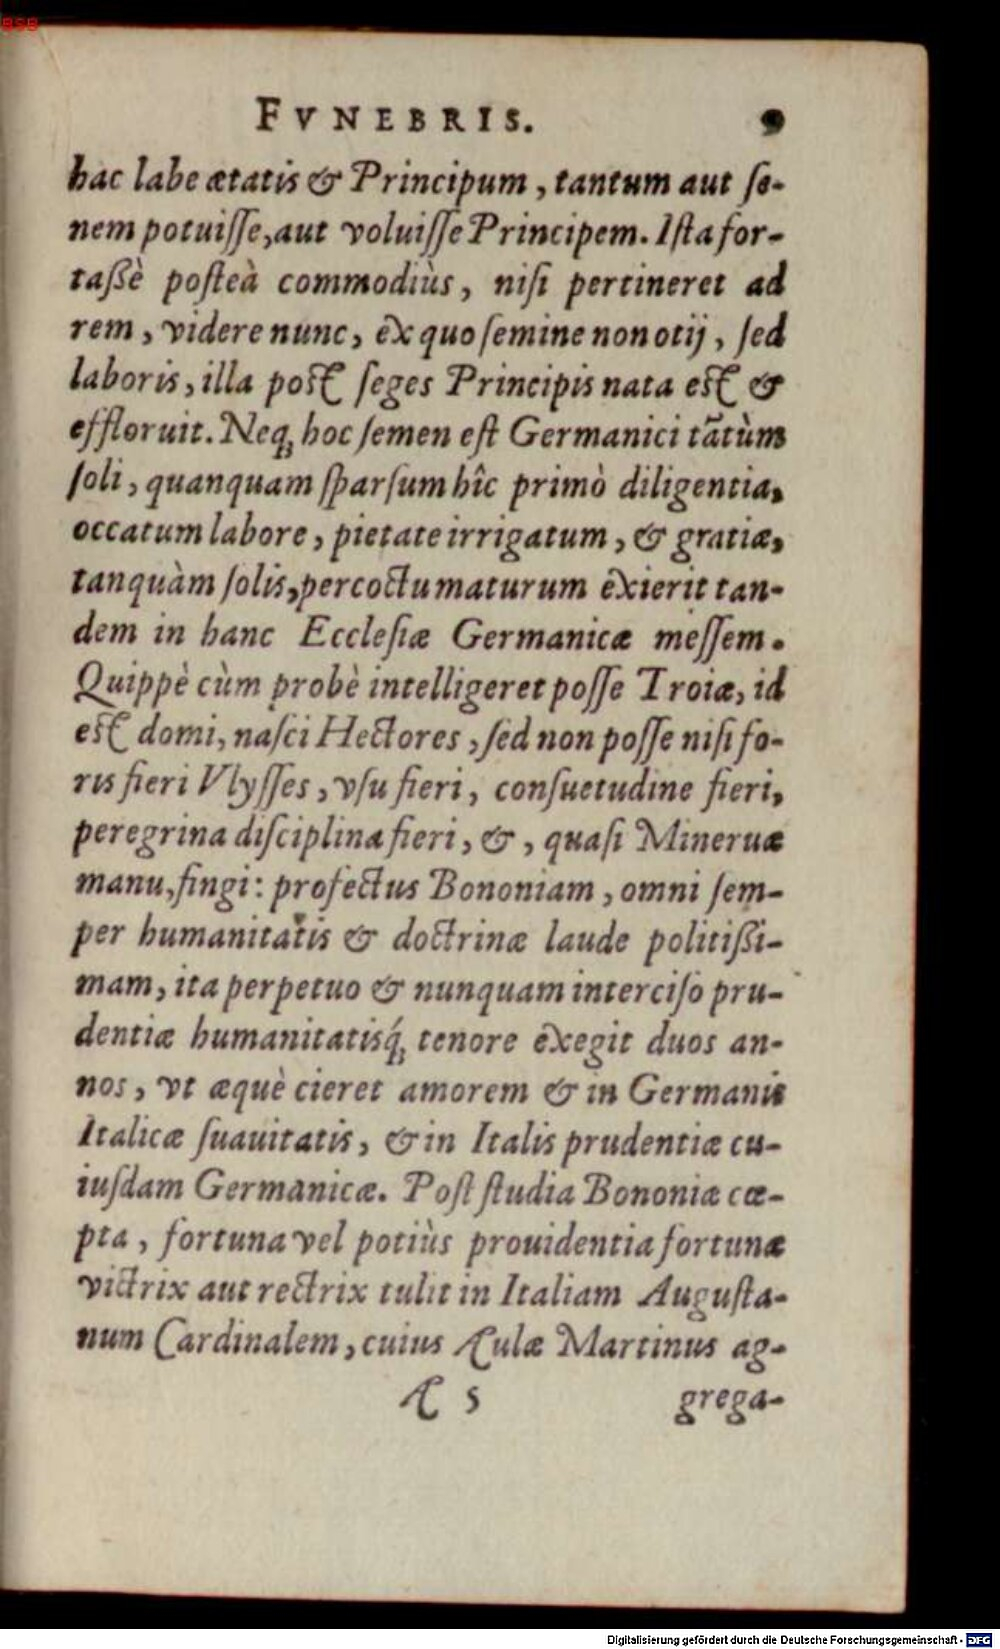 BSB
FVNEBRIS. 9
hac labe ætatis & Principum, tantum aut ſe-
nem potuiſſe, aut voluiſſe Principem. Iſta for-
taßè poſteà commodiùs, niſi pertineret ad
rem, videre nunc, ex quo ſemine non otij, ſed
laboris, illa poſt ſeges Principis nata eſt &
effloruit. Neq́; hoc ſemen eſt Germanici tātùm
ſoli, quanquam ſparſum hîc primò diligentia,
occatum labore, pietate irrigatum, & gratiæ,
tanquàm ſolis, percoctu maturum exierit tan-
dem in hanc Eccleſiæ Germanicæ meſſem.
Quippè cùm probè intelligeret poſſe Troiæ, id
eſt domi, naſci Hectores, ſed non poſſe niſi fo-
ris fieri Vlyſſes, vſu fieri, conſuetudine fieri,
peregrina diſciplina fieri, &, quaſi Mineruæ
manu, fingi: profectus Bononiam, omni ſem-
per humanitatis & doctrinæ laude politißi-
mam, ita perpetuo & nunquam interciſo pru-
dentiæ humanitatisq́; tenore exegit duos an-
nos, vt æquè cieret amorem & in Germanis
Italicæ ſuauitatis, & in Italis prudentiæ cu-
iuſdam Germanicæ. Poſt ſtudia Bononiæ cœ-
pta, fortuna vel potiùs prouidentia fortunæ
victrix aut rectrix tulit in Italiam Auguſta-
num Cardinalem, cuius Aulæ Martinus ag-
A 5 grega-
Digitalisierung gefördert durch die Deutsche Forschungsgemeinschaft - DFG